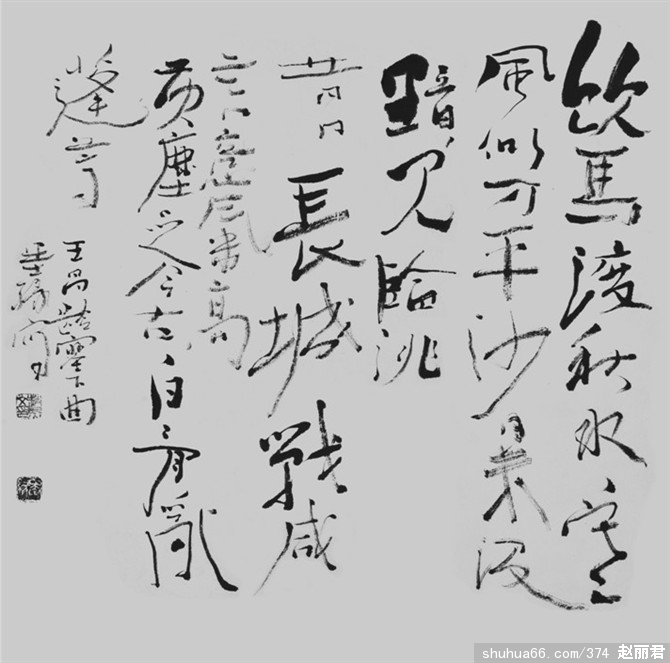 飲馬渡秋水寒
風似刀平沙日未没
黯見臨洮
昔日長城戰咸
高
黄塵足今古白骨亂
蓬蒿
王昌齡塞下曲
shuhua66.com/374 赵丽君